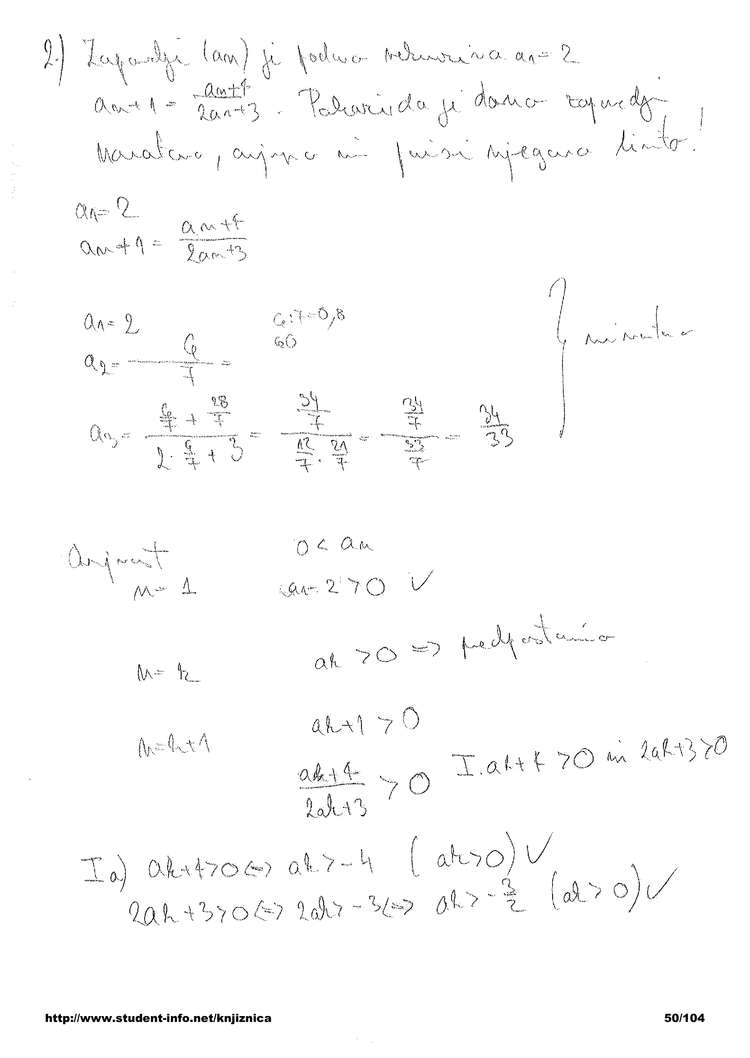 2.) Zaporedje (an) je podano rekurzivno a1 = 2
an+1 = \frac{an+4}{2an+3}. Pokaži, da je dano zaporedje
, in njegovo limito!
a1 = 2
an+1 = \frac{an+4}{2an+3}
a1 = 2 6:7=0,8
a2 = \frac{6}{7} = 60
a3 = \frac{\frac{6}{7} + \frac{28}{7}}{2 · \frac{6}{7} + 3} = \frac{\frac{34}{7}}{\frac{12}{7} · \frac{21}{7}} = \frac{\frac{34}{7}}{\frac{33}{7}} = \frac{34}{33}
0 < an
n = 1 a1 = 2 > 0 ✓
n = k ak > 0 => predpostavimo
n = k+1 ak+1 > 0
\frac{ak+4}{2ak+3} > 0 I. ak+4 > 0 in 2ak+3 > 0
I a) ak+4>0 <=> ak > -4 (ak>0) ✓
2ak+3>0 <=> 2ak > -3 <=> ak > -\frac{3}{2} (ak > 0) ✓
http://www.student-info.net/knjiznica 50/104